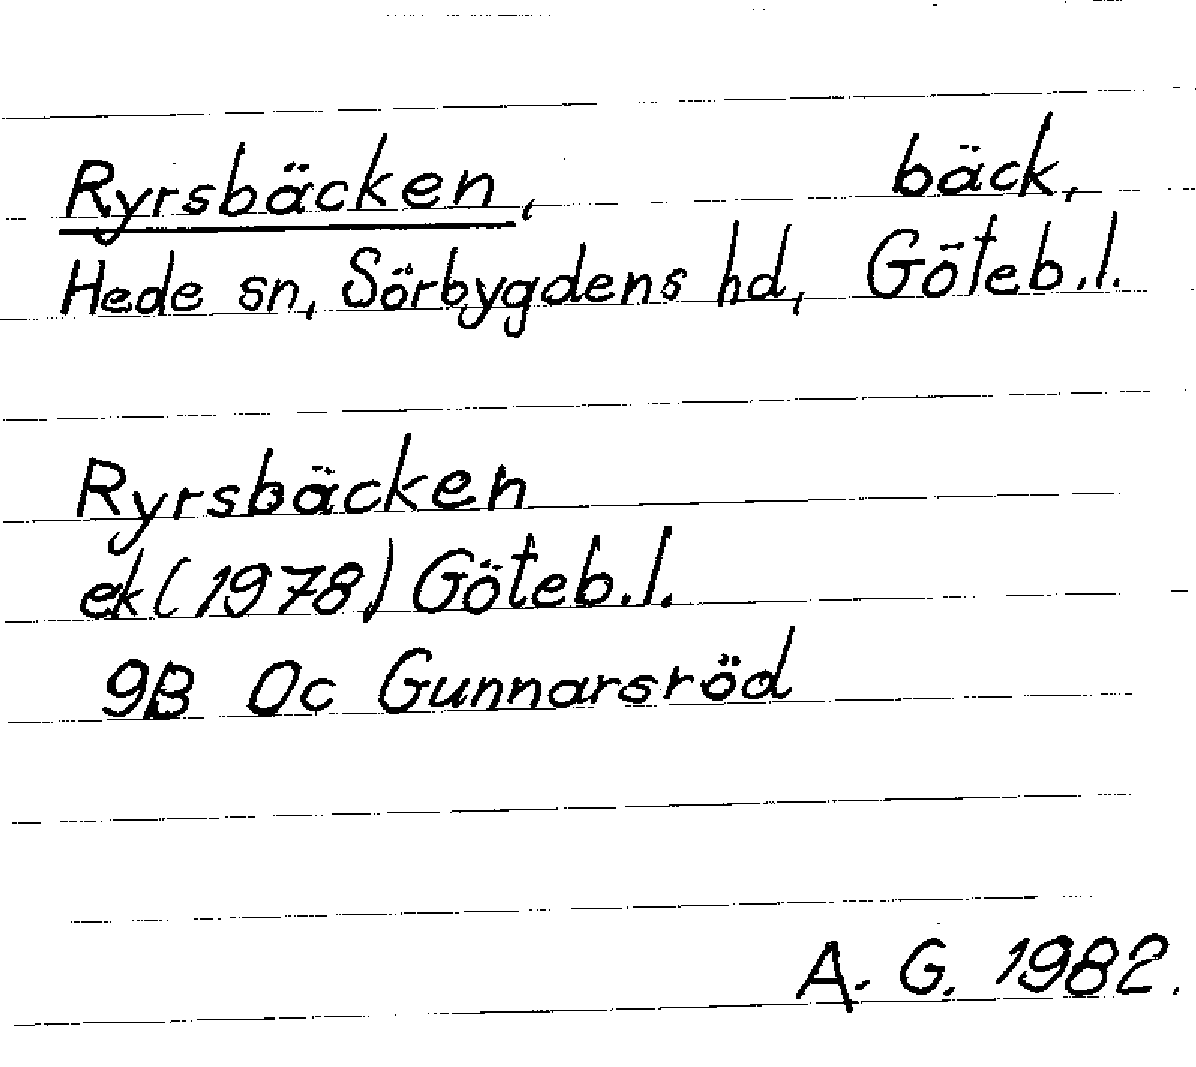 Ryrsbäcken, bäck,
Hede sn, Sörbygdens hd, Göteb.l.
Ryrsbäcken
ek (1978) Göteb.l.
9B Oc Gunnarsröd
A. G. 1982.